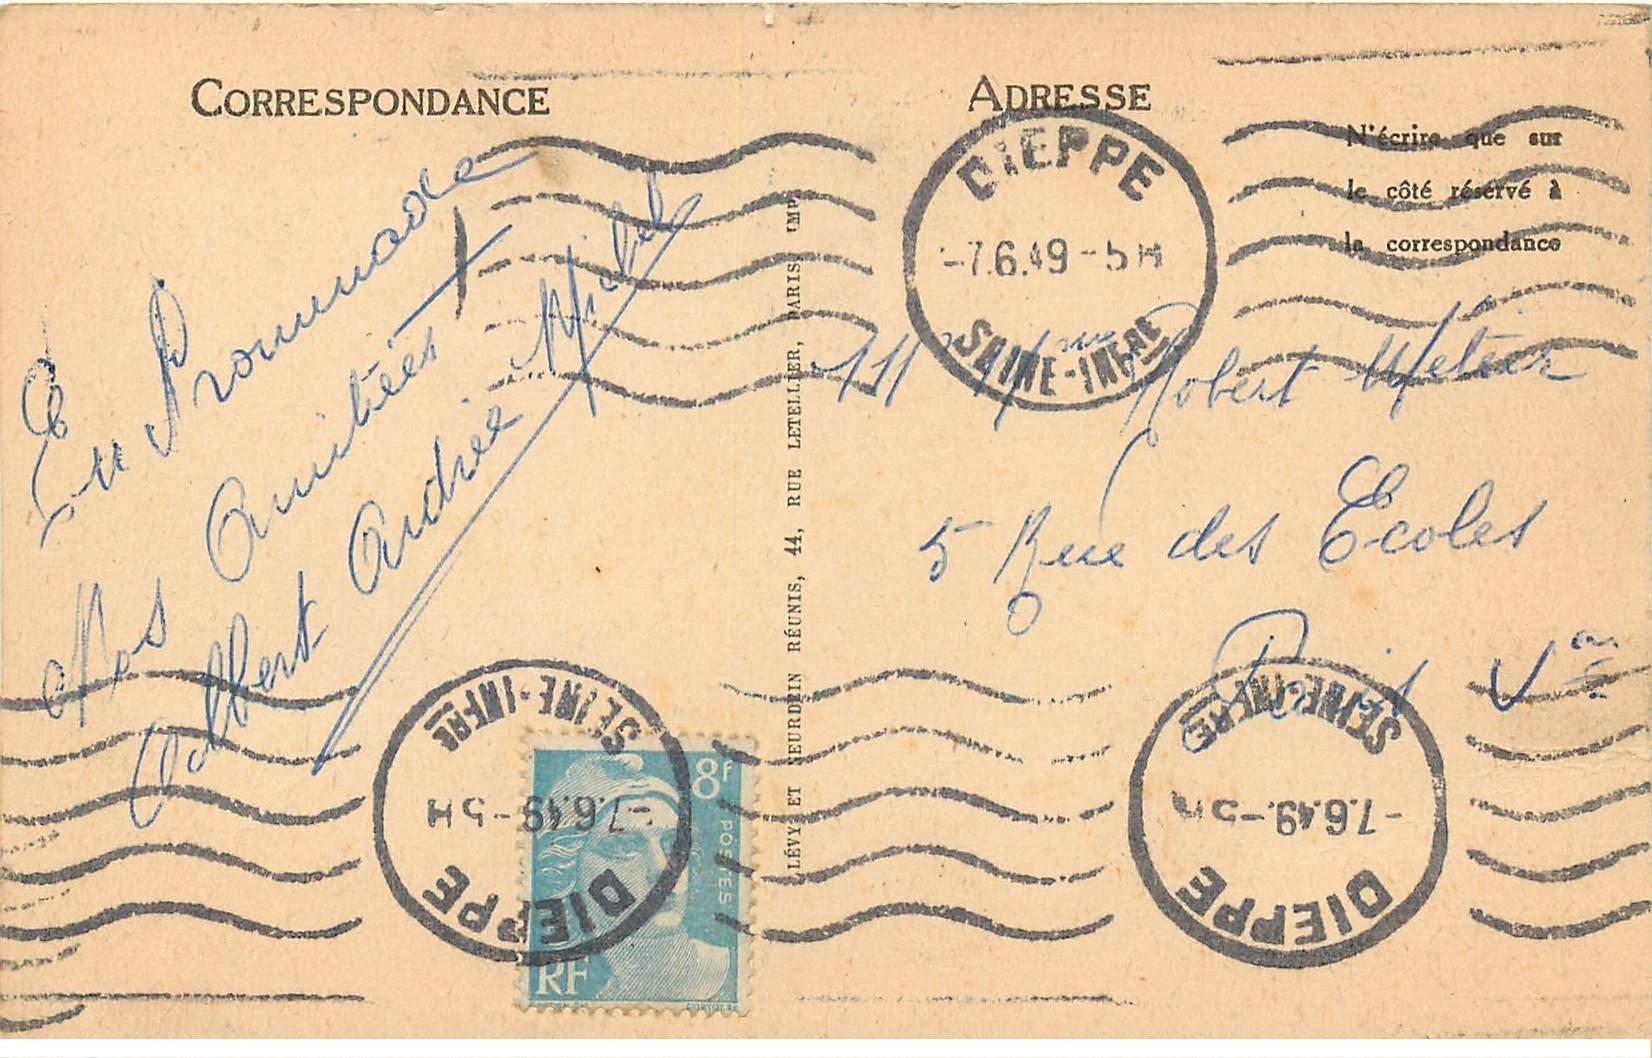 CORRESPONDANCE
En Promenade
Nos Amitiées
Albert Andrée Michel
LÉVY ET NEURDEIN RÉUNIS, 44, RUE LETELLIER, PARIS IMP.
ADRESSE
N'écrire que sur
le côté réservé à
la correspondance
DIEPPE
-7.6.49-5H
SEINE-INFRE
Mr Mme Robert
5 Rue des Ecoles
Paris Vem
SEINE-INFRE
-7.6.49-5H
DIEPPE
8f
POSTES
RF
SEINE-INFRE
-7.6.49-5H
DIEPPE